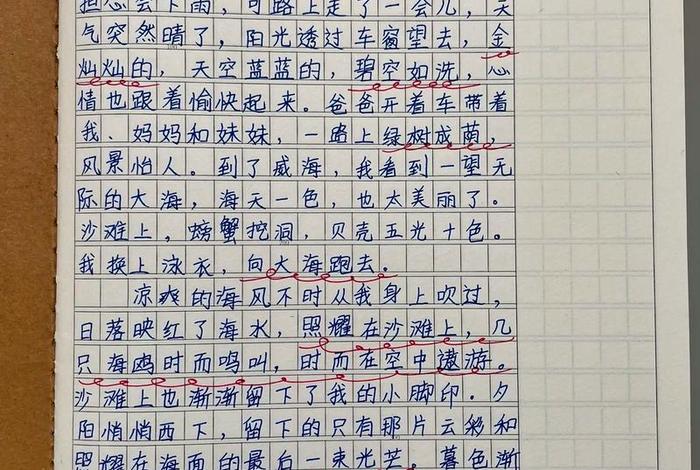 担心会下雨，可路上走了一会儿，天
气突然晴了，阳光透过车窗望去，金
灿灿的，天空蓝蓝的，碧空如洗，心
情也跟着愉快起来。爸爸开着车带着
我、妈妈和妹妹，一路上绿树成荫，
风景怡人。到了威海，我看到一望无
际的大海，海天一色，也太美丽了。
沙滩上，螃蟹挖洞，贝壳五光十色。
我换上泳衣，向大海跑去。
凉爽的海风不时从我身上吹过，
日落映红了海水，照耀在沙滩上，几
只海鸥时而鸣叫，时而在空中遨游。
沙滩上也渐渐留下了我的小脚印。夕
阳悄悄西下，留下的只有那片云彩和
照耀在海面的最后一束光芒。暮色渐